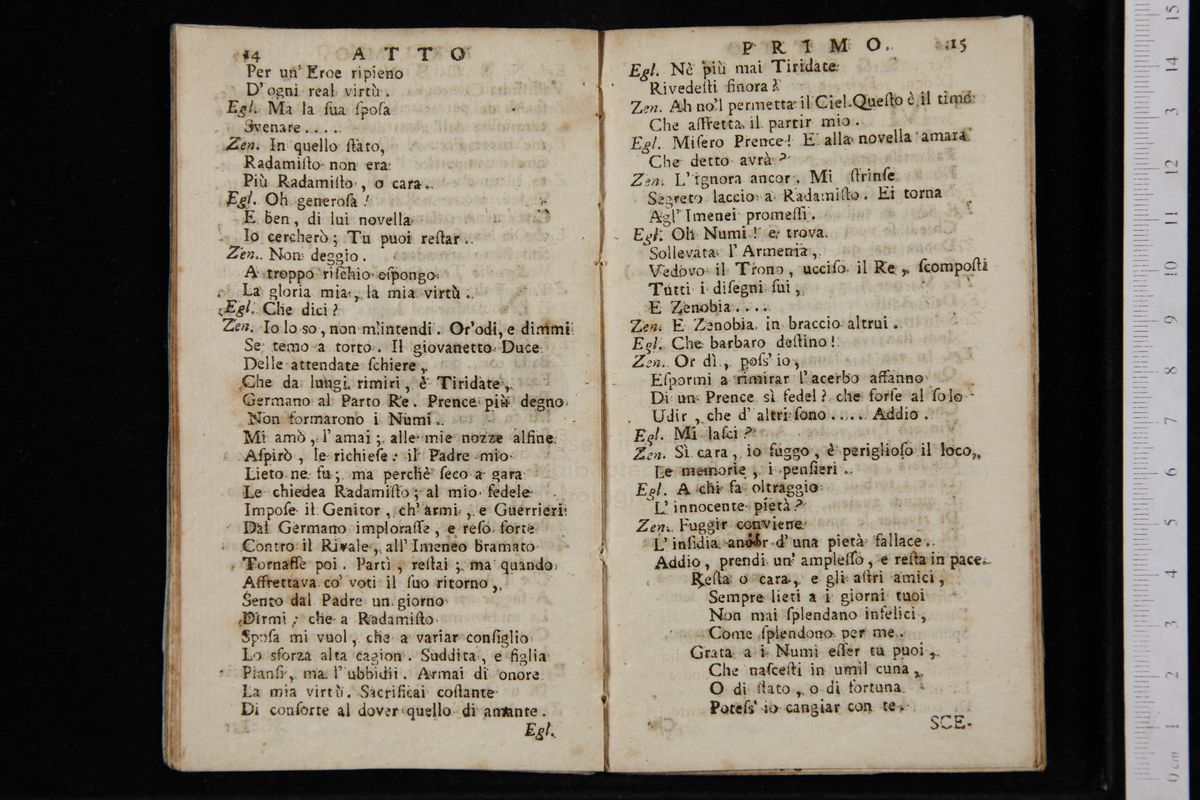 14 ATTO
Per un' Eroe ripieno
D' ogni real virtù.
Egl. Ma la ſua ſpoſa
Svenare....
Zen. In quello ſtato,
Radamiſto non era
Più Radamiſto, o cara.
Egl. Oh generoſa!
E ben, di lui novella
Io cercherò; Tu puoi reſtar..
Zen. Non deggio.
A troppo riſchio eſpongo
La gloria mia, la mia virtù.
Egl. Che dici?
Zen. Io lo so, non m'intendi. Or'odi, e dimmi
Se temo a torto. Il giovanetto Duce
Delle attendate ſchiere,
Che da lungi rimiri, è Tiridate,
Germano al Parto Re. Prence più degno
Non formarono i Numi.
Mi amò, l'amai; alle mie nozze alfine
Aſpirò, le richieſe: il Padre mio
Lieto ne fu; ma perchè ſeco a gara
Le chiedea Radamiſto; al mio fedele
Impoſe il Genitor, ch'armi, e Guerrieri
Dal Germano imploraſſe, e reſo forte
Contro il Rivale, all'Imeneo bramato
Tornaſſe poi. Partì, reſtai; ma quando
Affrettava co' voti il ſuo ritorno,
Sento dal Padre un giorno
Dirmi: che a Radamiſto
Spoſa mi vuol, che a variar conſiglio
Lo sforza alta cagion. Suddita, e figlia
Pianſi, ma l'ubbidii. Armai di onore
La mia virtù. Sacrificai coſtante
Di conſorte al dover quello di amante.
Egl.
PRIMO. 15
Egl. Nè più mai Tiridate
Rivedeſti finora?
Zen. Ah no'l permetta il Ciel. Queſto è il timor
Che affretta il partir mio.
Egl. Miſero Prence! E alla novella amara
Che detto avrà?
Zen. L'ignora ancor. Mi ſtrinſe
Segreto laccio a Radamiſto. Ei torna
Agl' Imenei promeſſi.
Egl. Oh Numi! e trova
Sollevata l'Armenia,
Vedovo il Trono, ucciſo il Re, ſcompoſti
Tutti i diſegni ſui,
E Zenobia....
Zen. E Zenobia in braccio altrui.
Egl. Che barbaro deſtino!
Zen. Or dì, poſs' io,
Eſpormi a rimirar l'acerbo affanno
Di un Prence sì fedel? che forſe al ſolo
Udir, che d' altri ſono..... Addio.
Egl. Mi laſci?
Zen. Sì cara, io fuggo, è periglioſo il loco,
Le memorie, i penſieri.
Egl. A chi fa oltraggio
L' innocente pietà?
Zen. Fuggir conviene
L' inſidia ancor d'una pietà fallace.
Addio, prendi un' ampleſſo, e reſta in pace.
Reſta o cara, e gli aſtri amici,
Sempre lieti a i giorni tuoi
Non mai ſplendano infelici,
Come ſplendono per me.
Grata a i Numi eſſer tu puoi,
Che naſceſti in umil cuna,
O di ſtato, o di fortuna
Poteſs' io cangiar con te.
SCE-